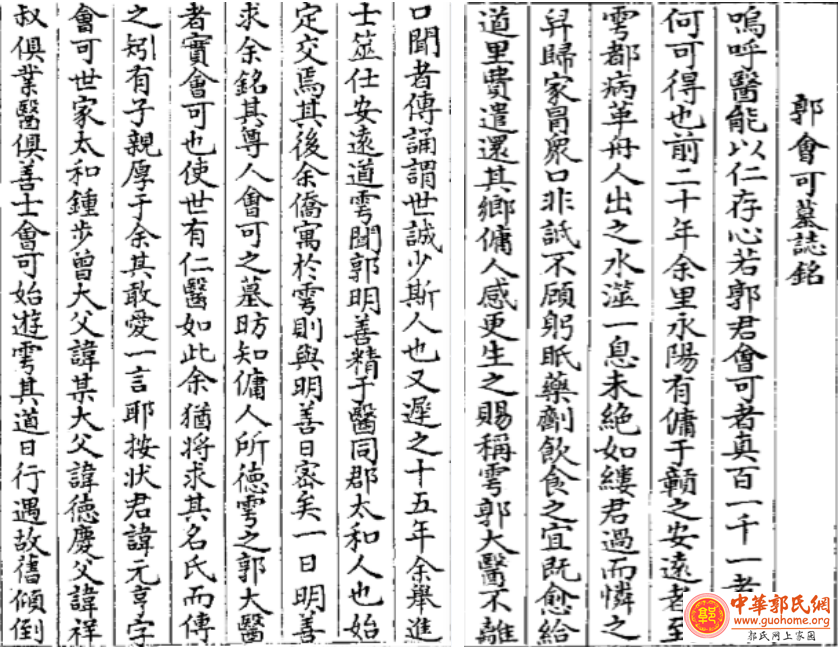 郭會可墓誌銘
嗚呼醫能以仁存心若郭君會可者真百一千一者
何可得也前二十年余里永陽有傭于贛之安遠者至
雩都病革舟人出之水澨一息未絶如縷君過而憐之
舁歸家冐衆口非詆不顧躬眂藥劑飲食之宜既愈給
道里費遣還其鄉傭人感更生之賜稱雩郭大醫不離
口聞者傳誦謂世誠少斯人也又遲之十五年余舉進
士筮仕安遠道雩聞郭明善精于醫同郡太和人也始
定交焉其後余僑寓於雩則與明善日密矣一日明善
求余銘其尊人會可之墓昉知傭人所德雩之郭大醫
者實會可也使世有仁醫如此余猶将求其名氏而傳
之矧有子親厚于余其敢愛一言耶按状君諱元亨字
會可世家太和鍾步曾大父諱某大父諱德慶父諱祥
叔俱業醫俱善士會可始遊雩其道日行遇故舊傾倒
中華郭氏網
www.guohome.org
郭氏网上家園